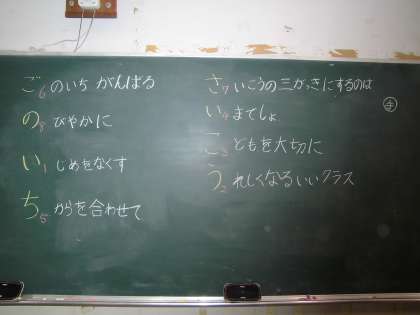 ご6のいち がんばる
の8びやかに
い1じめをなくす
ち5からを合わせて
さ7いこうの三がっきにするのは
い4までしょ
こ3どもを大切に
う2れしくなるいいクラス